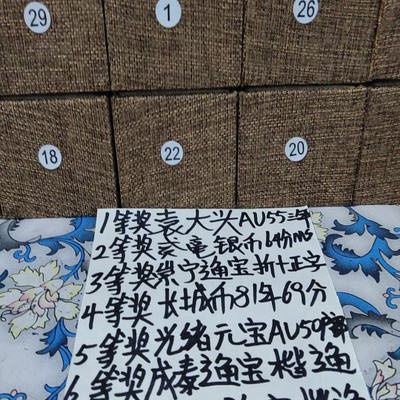 29 1 26
18 22 20
1等奖袁大头AU55三年
2等奖 银币64分MS
3等奖崇宁通宝折十正字
4等奖长城币81年69分
5等奖光绪元宝AU50
6等奖成泰通宝楷通